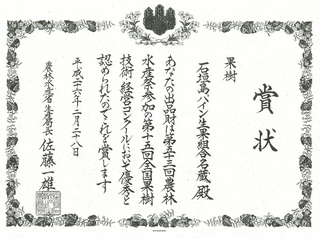 賞状
果樹
石垣島パイン生果組合名蔵殿
あなたの出品財は第五十三回農林
水産祭参加の第十五回全国果樹
技術・経営コンクールにおいて優秀と
認められたのでこれを賞します
平成二十六年二月二十八日
農林水産省生産局長 佐藤一雄